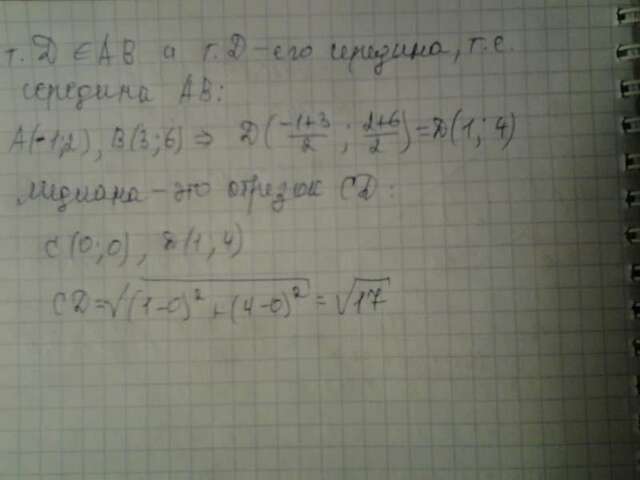 т. D ∈ AB а т. D - его середина, т.е.
середина AB:
A(-1;2), B(3;6) ⇒ D(-1+3/2 ; 2+6/2) = D(1; 4)
медиана - это отрезок CD:
C(0;0), D(1,4)
CD = √((1-0)² + (4-0)²) = √17